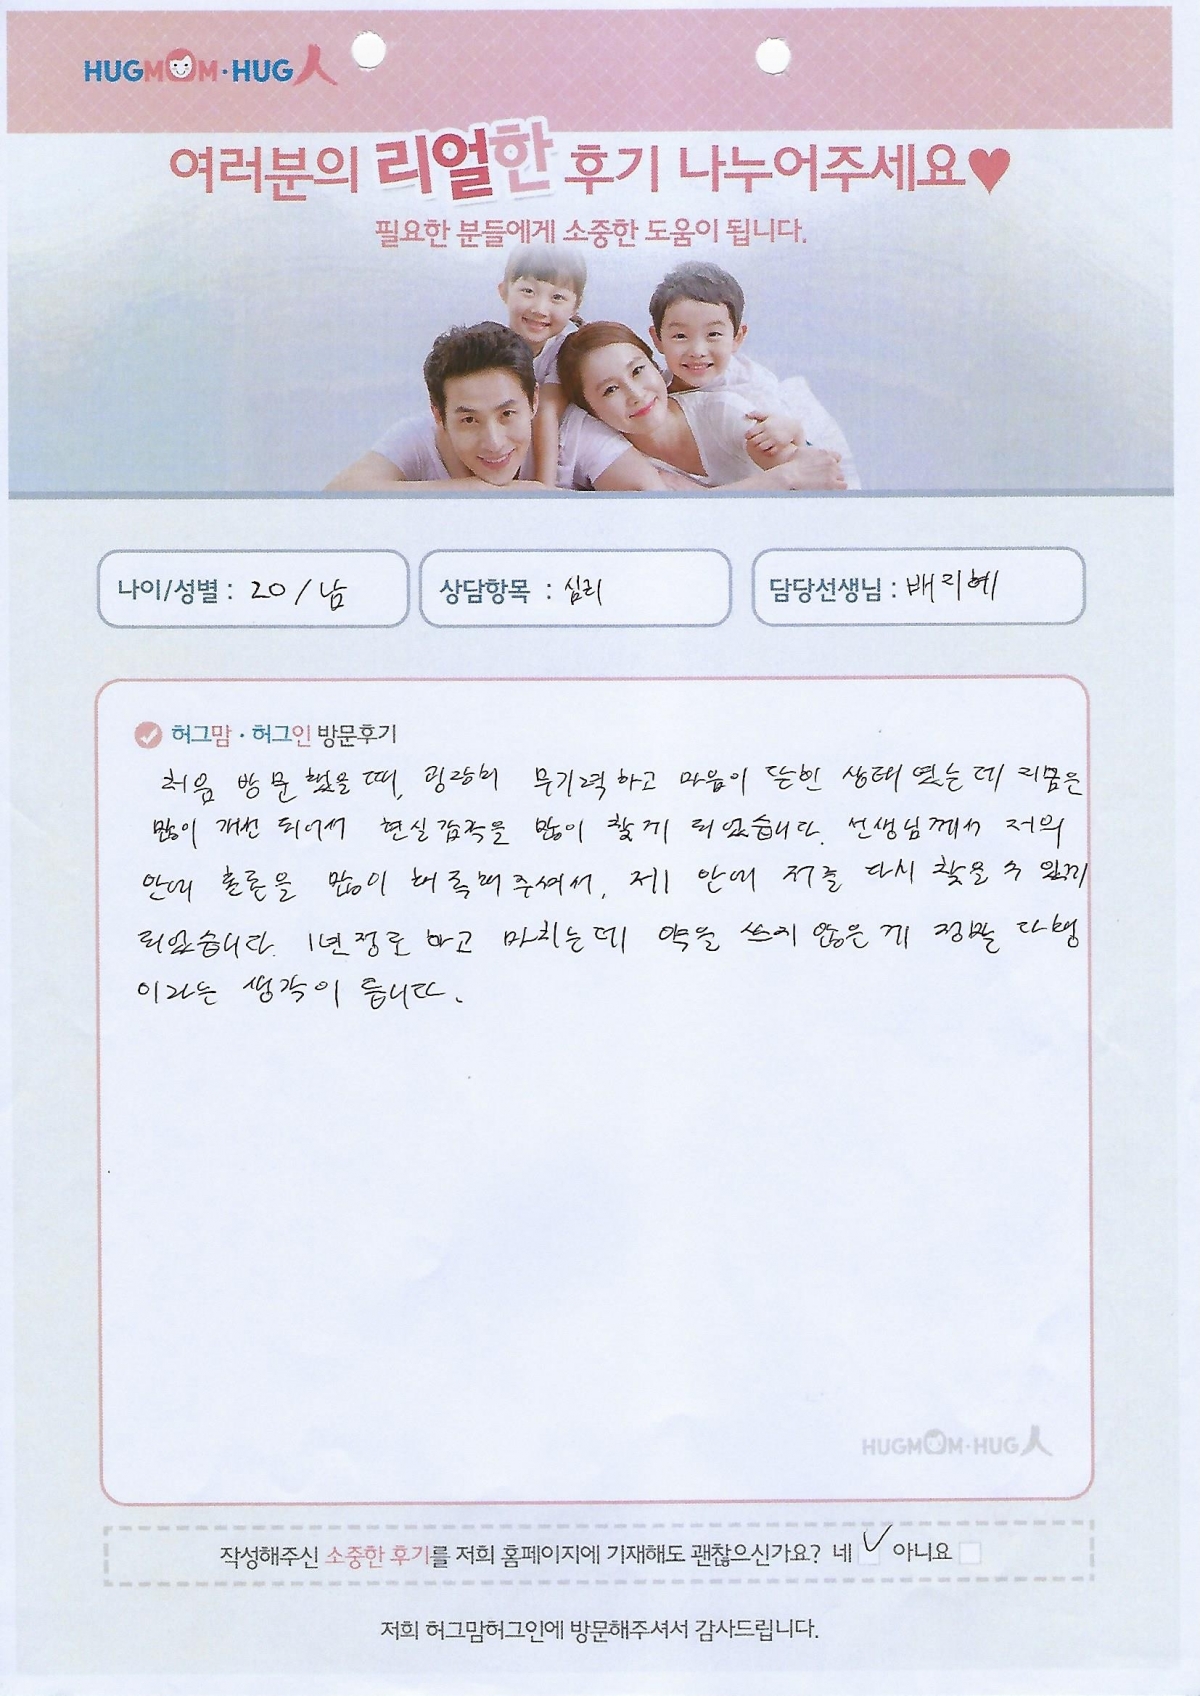 HUGMOM·HUG人
여러분의 리얼한 후기 나누어주세요♥
필요한 분들에게 소중한 도움이 됩니다.
나이/성별 : 20 / 남
상담항목 : 심리
담당선생님 : 배지혜
허그맘·허그인 방문후기
처음 방문했을 때, 굉장히 무기력하고 마음이 닫힌 상태였는데 지금은
많이 개선 되어서 현실감각을 많이 찾게 되었습니다. 선생님께서 저의
안에 혼란을 많이 해독해주셔서, 제 안에 저를 다시 찾을 수 있게
되었습니다. 1년정도 하고 마치는데 약을 쓰지 않은 게 정말 다행
이라는 생각이 듭니다.
HUGMOM·HUG人
작성해주신 소중한 후기를 저희 홈페이지에 기재해도 괜찮으신가요? 네 아니요
저희 허그맘허그인에 방문해주셔서 감사드립니다.